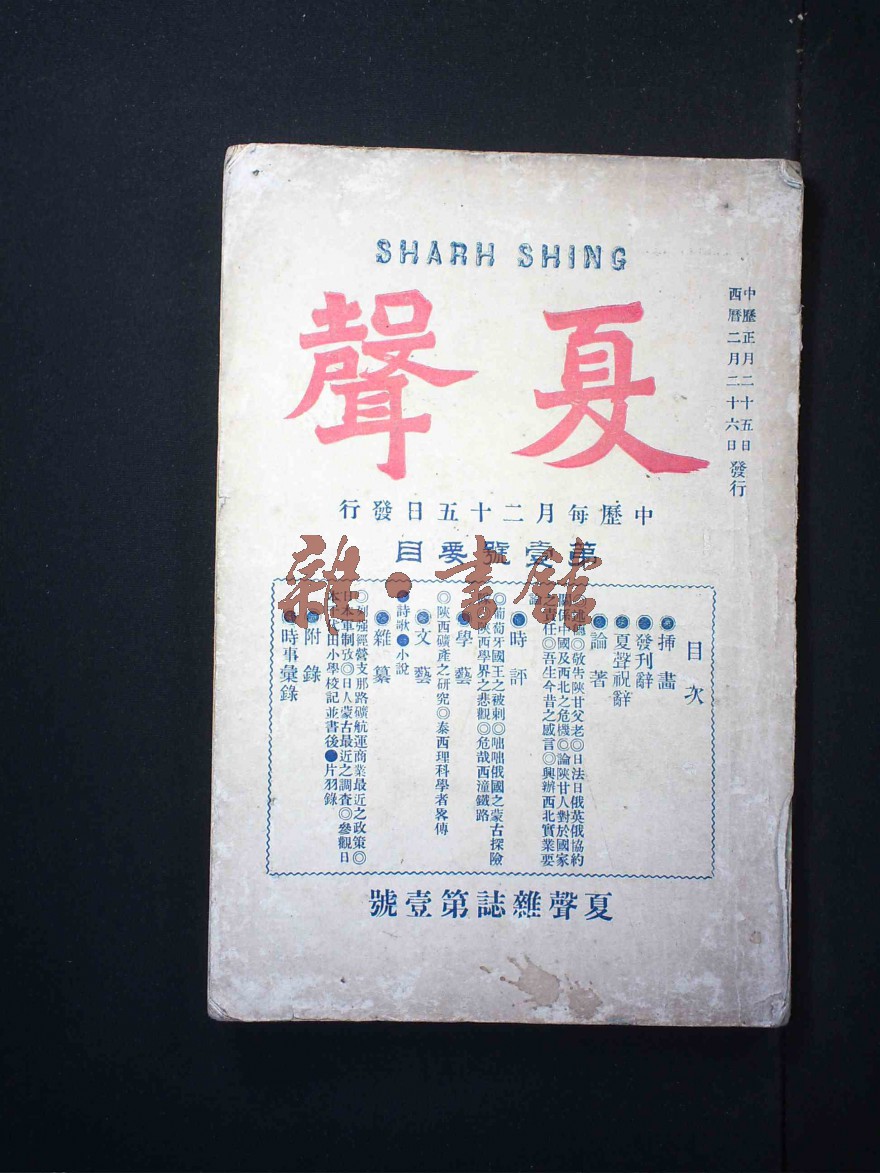 SHARH SHING
夏聲
中歷正月二十五日
西曆二月二十六日
發行
中歷每月二十五日發行
第壹號要目
目次
插畫
發刊辭
夏聲祝辭
論著
◎敬告陝甘父老◎日法日俄英俄協約
關係中國及西北之危機◎論陝甘人對於國家
之責任◎吾生今昔之感言◎興辦西北實業要
論
時評
◎葡萄牙國王之被刺◎咄咄俄國之蒙古探險
陝西學界之悲觀◎危哉西潼鐵路
學藝
◎陝西礦產之研究◎泰西理科學者畧傳
文藝
●詩歌●小說
雜纂
◎列強經營支那路礦航運商業最近之政策◎
日本軍制攷◎日人蒙古最近之調查◎參觀日
本千代田小學校記並書後●片羽錄
附錄
時事彙錄
夏聲雜誌第壹號
雜·書館